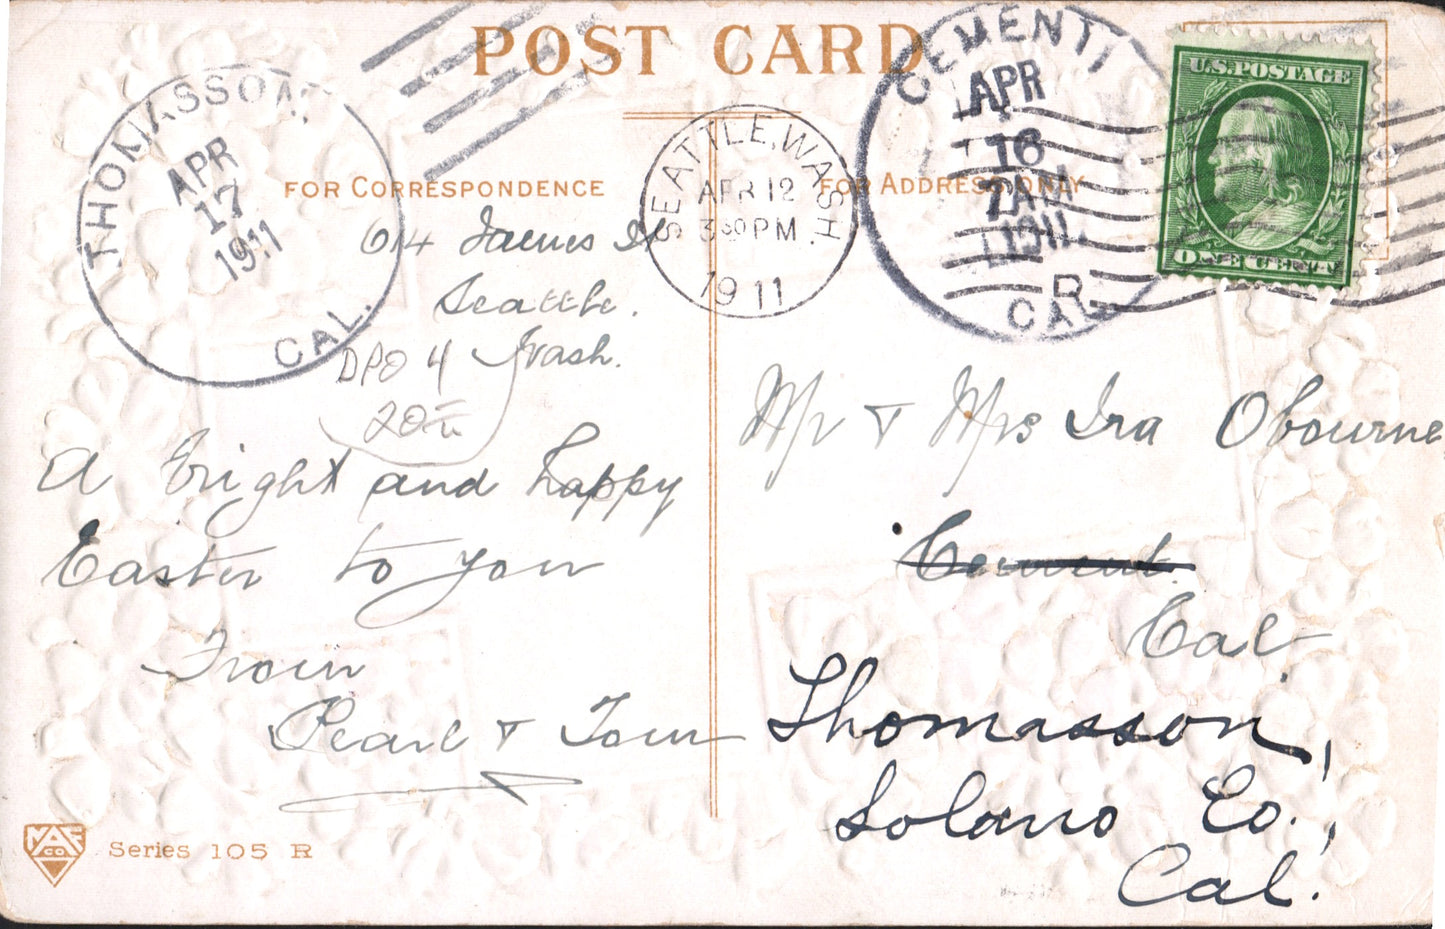 POST CARD
THOMASSON
APR
17
1911
CAL.
SEATTLE, WASH.
APR 12
3 30 PM
1911
CEMENT
APR
16
7 AM
1911
R
CAL
U.S. POSTAGE
ONE CENT
FOR CORRESPONDENCE
FOR ADDRESS ONLY
614 James St
Seattle.
Wash.
DPO 4
20
A bright and happy
Easter to you
From
Pearl & Tom
Mr & Mrs Ira Obourne
Cement.
Cal
Thomasson,
Solano Co.,
Cal.
Series 105 R